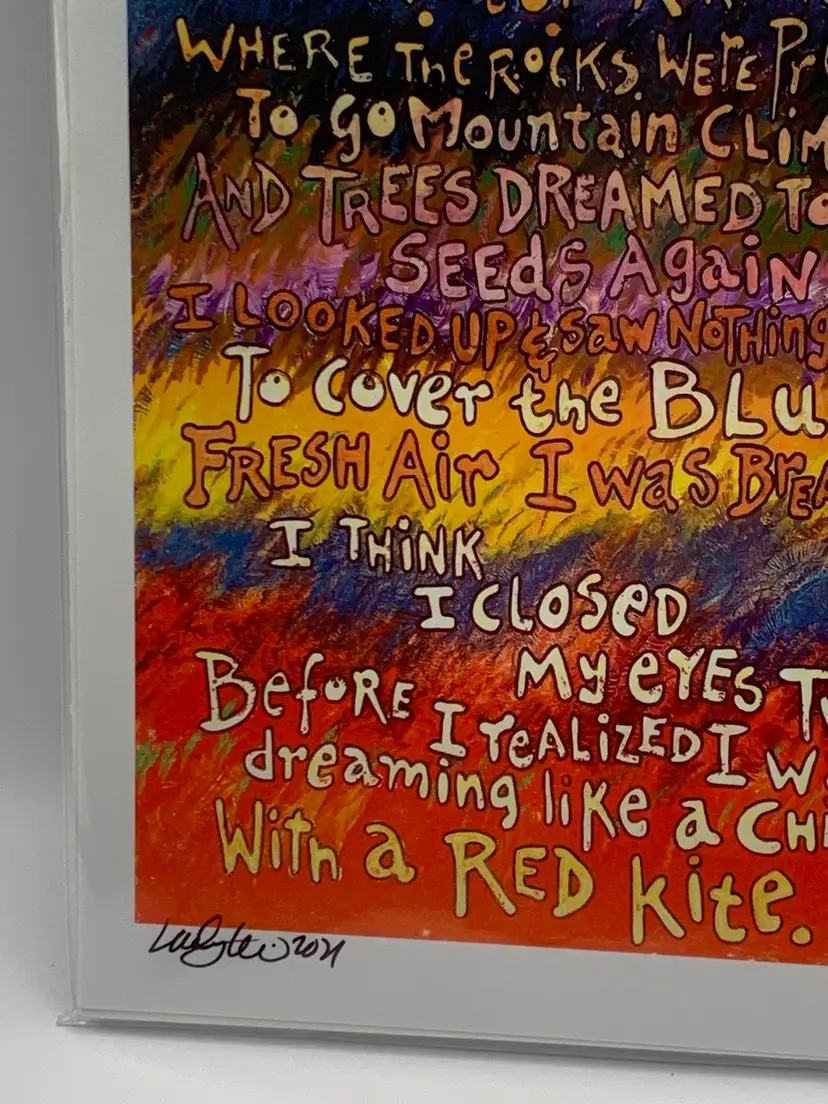 WHERE The ROCKS WerE Pr
To go Mountain CLIM
AND TREES DREAMED To
SEEdS Again
I LOOKED UP & saw NoTHing
To Cover the BLU
FRESH Air I was BrEA
I THiNK
I CLOSED
My eYES
BefoRE I reALiZED I W
dreaming like a CHi
With a RED kite.
2021